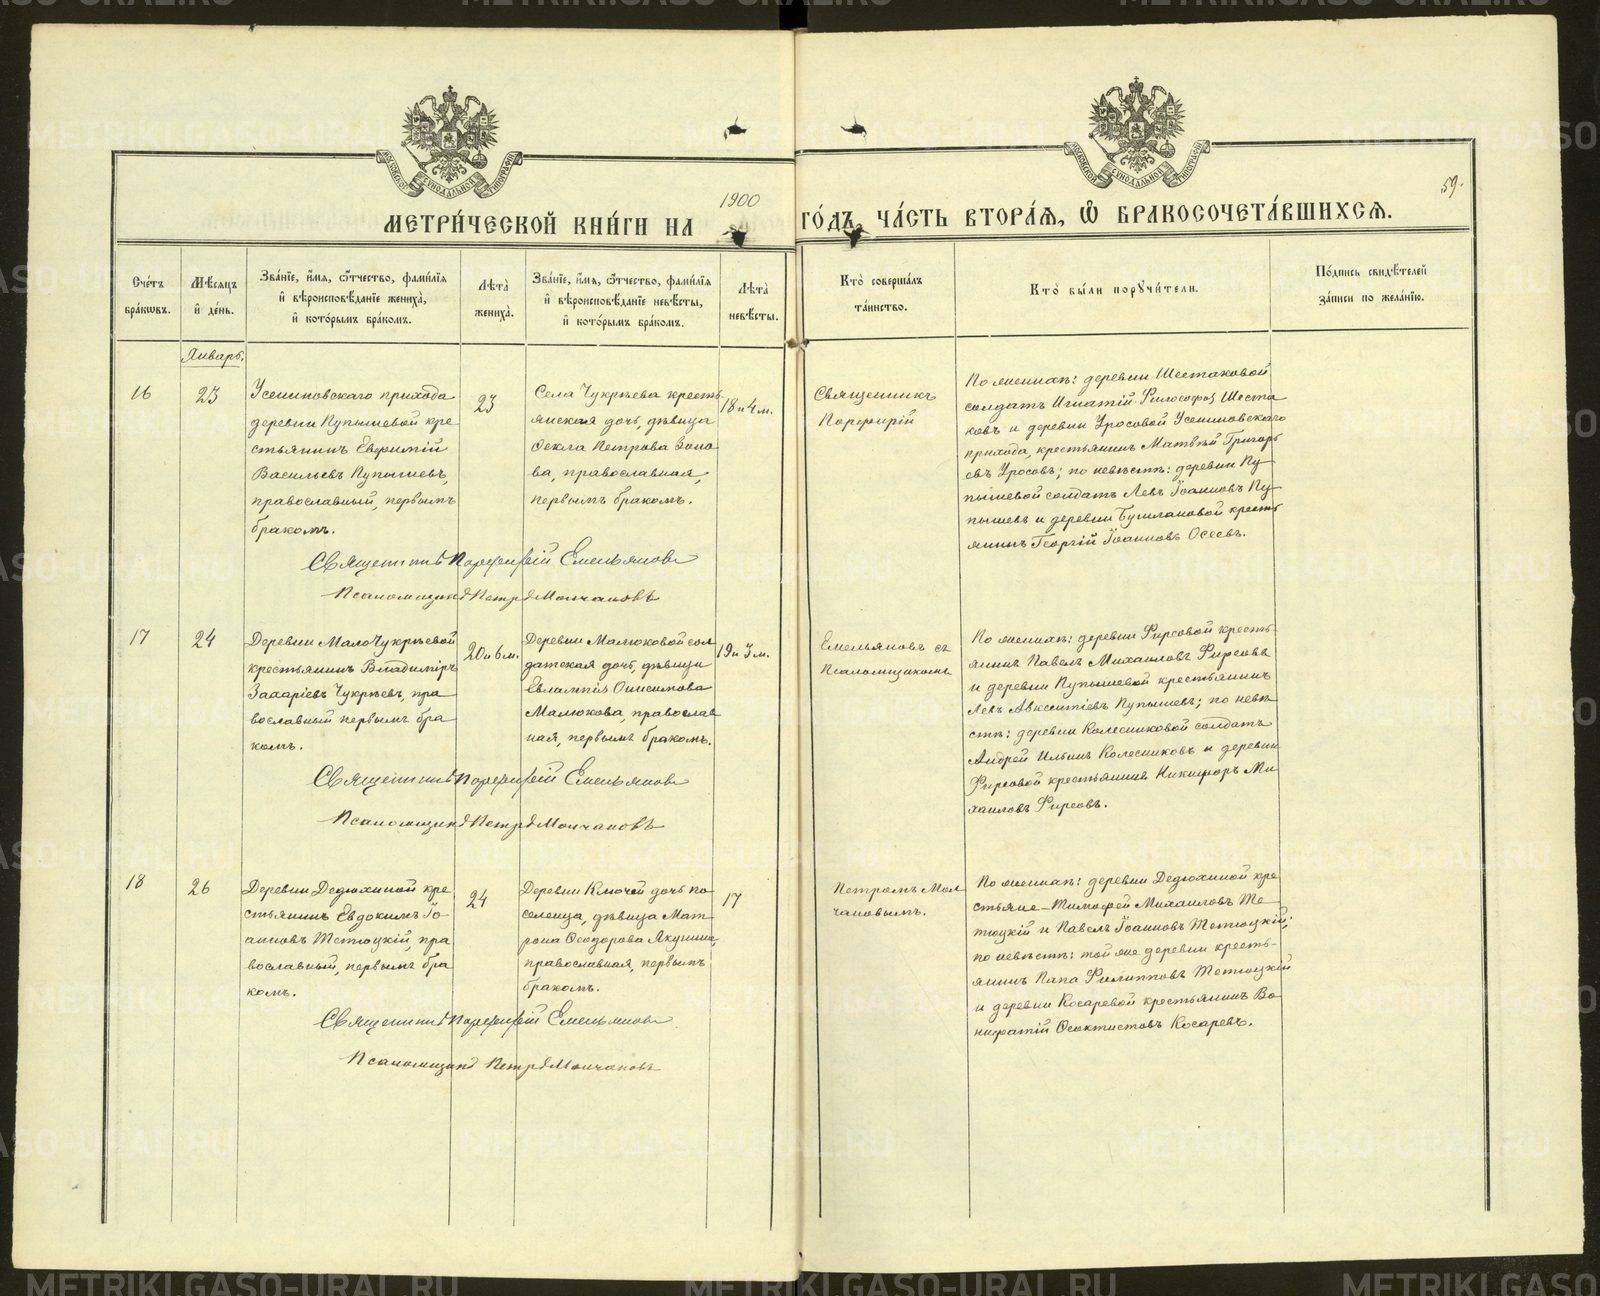 1900
59.
МЕТРИ́ЧЕСКОЙ КНИ́ГИ НА
ГО́ДЪ, ЧА́СТЬ ВТОРА́Ѧ, Ѽ БРАКОСОЧЕТА́ВШИХСѦ.
МОСКОВСКОЙ СѴНОДАЛЬНОЙ ТИПОГРАФІИ
МОСКОВСКОЙ СѴНОДАЛЬНОЙ ТИПОГРАФІИ
Сче́тъ
бра́кѡвъ.
Мѣ́сѧцъ
и҆ де́нь.
Зва́нїе, и҆́мѧ, ѻ҆́тчество, фами́лїѧ
и҆ вѣроисповѣ́данїе жениха̀,
и҆ кото́рымъ бра́комъ.
Лѣта̀
жениха̀.
Зва́нїе, и҆́мѧ, ѻ҆́тчество, фами́лїѧ
и҆ вѣроисповѣ́данїе невѣ́сты,
и҆ кото́рымъ бра́комъ.
Лѣта̀
невѣ́сты.
Кто̀ соверша́лъ
та́инство.
Кто̀ бы́ли порꙋчи́тели.
По́дпись свидѣ́телей
за́писи по жела́нїю.
Январь.
16
23
Усениновскаго прихода
деревни Пупышевой кре
стьянинъ Евфимій
Васильевъ Пупышевъ,
православный, первымъ
бракомъ.
23
Села Чукрѣева кресть
янская дочь, дѣвица
Ѳекла Петрова Зоно
ва, православная,
первымъ бракомъ.
18 и 4 м.
Священникъ
Порфирій
По женихѣ: деревни Шестаковой
солдатъ Игнатій Философов Шеста
ковъ и деревни Уросовой Усениновскаго
прихода, крестьянинъ Матвѣй Григорь
евъ Уросовъ; по невѣстѣ: деревни Пу
пышевой солдатъ Левъ Іоанновъ Пу
пышевъ и деревни Бушлановой кресть
янинъ Георгій Іоанновъ Осеевъ.
Священникъ Порфирій Емельяновъ
Псаломщикъ Петръ Молчановъ
17
24
Деревни МалоЧукрѣевой
крестьянинъ Владиміръ
Захаріевъ Чукрѣевъ, пра
вославный первымъ бра
комъ.
20 и 6 м.
Деревни Малюковой сол
датская дочь, дѣвица
Евлампія Онисимова
Малюкова, православ
ная, первымъ бракомъ.
19 и 3 м.
Емельяновъ съ
Псаломщикомъ
По женихѣ: деревни Фирсовой кресть
янинъ Павелъ Михаиловъ Фирсовъ
и деревни Пупышевой крестьянинъ
Левъ Авксентіевъ Пупышевъ; по невѣ
стѣ: деревни Колесниковой солдатъ
Андрей Ильинъ Колесниковъ и деревни
Фирсовой крестьянинъ Никифоръ Ми
хаиловъ Фирсовъ.
Священникъ Порфирій Емельяновъ
Псаломщикъ Петръ Молчановъ
18
26
Деревни Дедюхиной кре
стьянинъ Евдокимъ Іо
анновъ Тетюцкій, пра
вославный, первымъ бра
комъ.
24
Деревни Ключей дочь по
селенца, дѣвица Мат
рона Ѳеодорова Якунина,
православная, первымъ
бракомъ.
17
Петромъ Мол
чановымъ.
По женихѣ: деревни Дедюхиной кре
стьяне – Тимофей Михаиловъ Те
тюцкій и Павелъ Іоанновъ Тетюцкій;
по невѣстѣ: той же деревни кресть-
янинъ Папа Филипповъ Тетюцкій
и деревни Косаревой крестьянинъ Во
нифатій Ѳеоктистовъ Косаревъ.
Священникъ Порфирій Емельяновъ
Псаломщикъ Петръ Молчановъ
METRIKI.GASO-URAL.RU